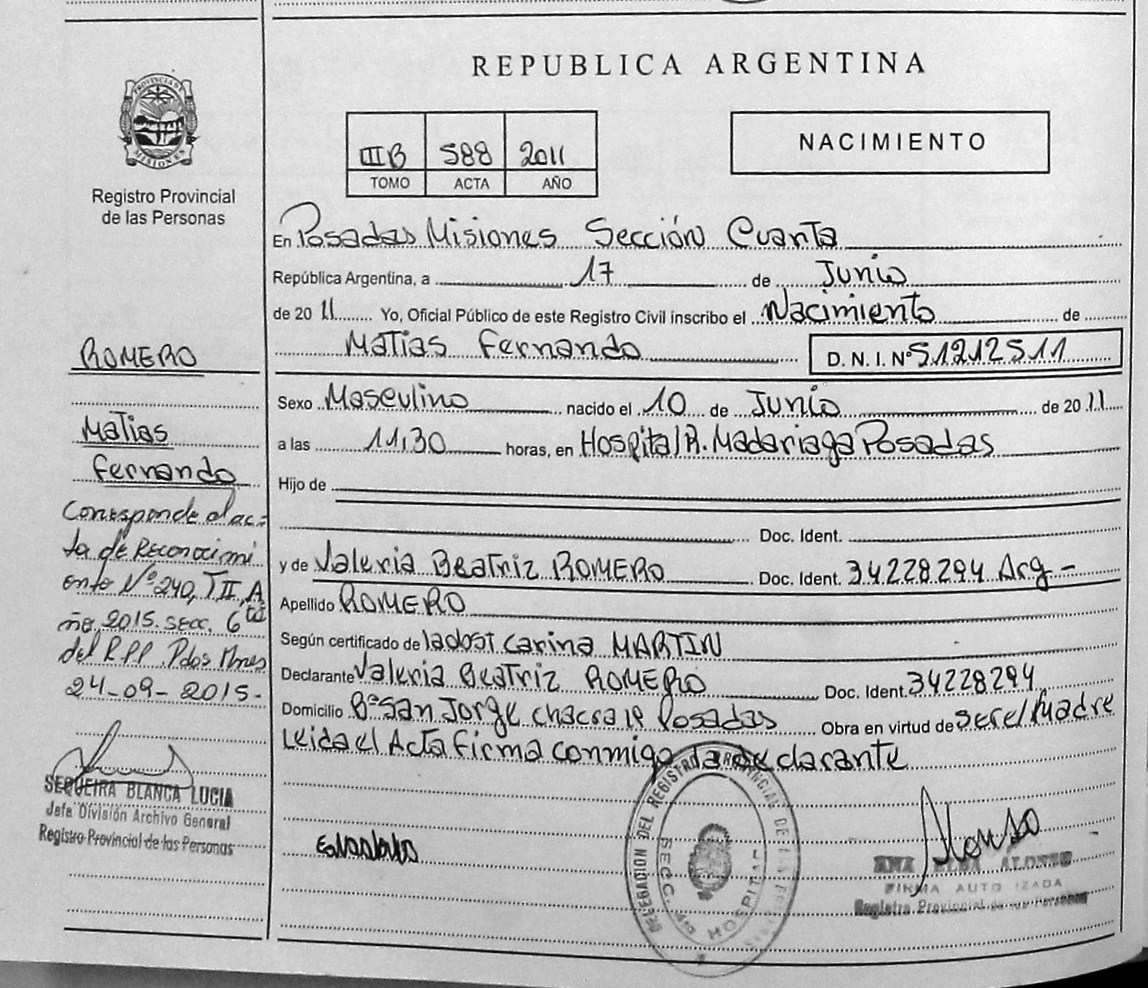 REPUBLICA ARGENTINA
PROVINCIA DE
MISIONES
Registro Provincial
de las Personas
III B 588 2011
TOMO ACTA AÑO
NACIMIENTO
En Posadas Misiones Sección Cuarta
República Argentina, a 17 de Junio
de 2011 Yo, Oficial Público de este Registro Civil inscribo el Nacimiento de
Matias Fernando D. N. I. Nº 51212511
Sexo Masculino nacido el 10 de Junio de 2011
a las 11,30 horas, en Hospital R. Madariaga Posadas
Hijo de
Doc. Ident.
y de Valeria Beatriz ROMERO Doc. Ident. 34228294 Arg -
Apellido ROMERO
Según certificado de Carina MARTIN
Declarante Valeria Beatriz ROMERO Doc. Ident. 34228294
Domicilio Bº San Jorge chacra Posadas Obra en virtud de ser el Madre
Leida el Acta firma conmigo la declarante
ROMERO
Matias
Fernando
Corresponde al ac-
ta de Reconocimi
ento Nº 240, T II, A
ño, 2015. Secc. 6ta
del R.P.P. Pdas Mnes
24-09-2015-
SEQUEIRA BLANCA LUCIA
Jefa División Archivo General
Registro Provincial de las Personas
DELEGACION DEL REGISTRO PROVINCIAL DE LAS PERSONAS
SECC. 4ta HOSPITAL
Alonso
ANA ELBA ALONSO
FIRMA AUTORIZADA
Registro Provincial de las Personas